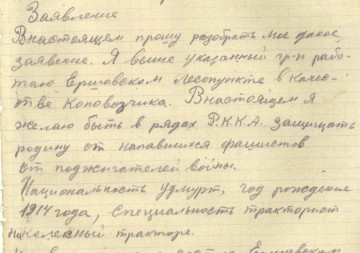 Заявление
Внастоящем прошу разобрать мое даное
заявение. Я выше указанный гр-н рабо-
таю Ершовском Лесопункте в качес-
тве Коновозчика. Внастоящем я
желаю быть в рядах Р.К.К.А. защищать
родину от напавшихся фашистов
от поджигателей войны.
Национальность удмурт, год рождение
1914 года, специальность тракторист
на колесный тракторе.
Ершовском